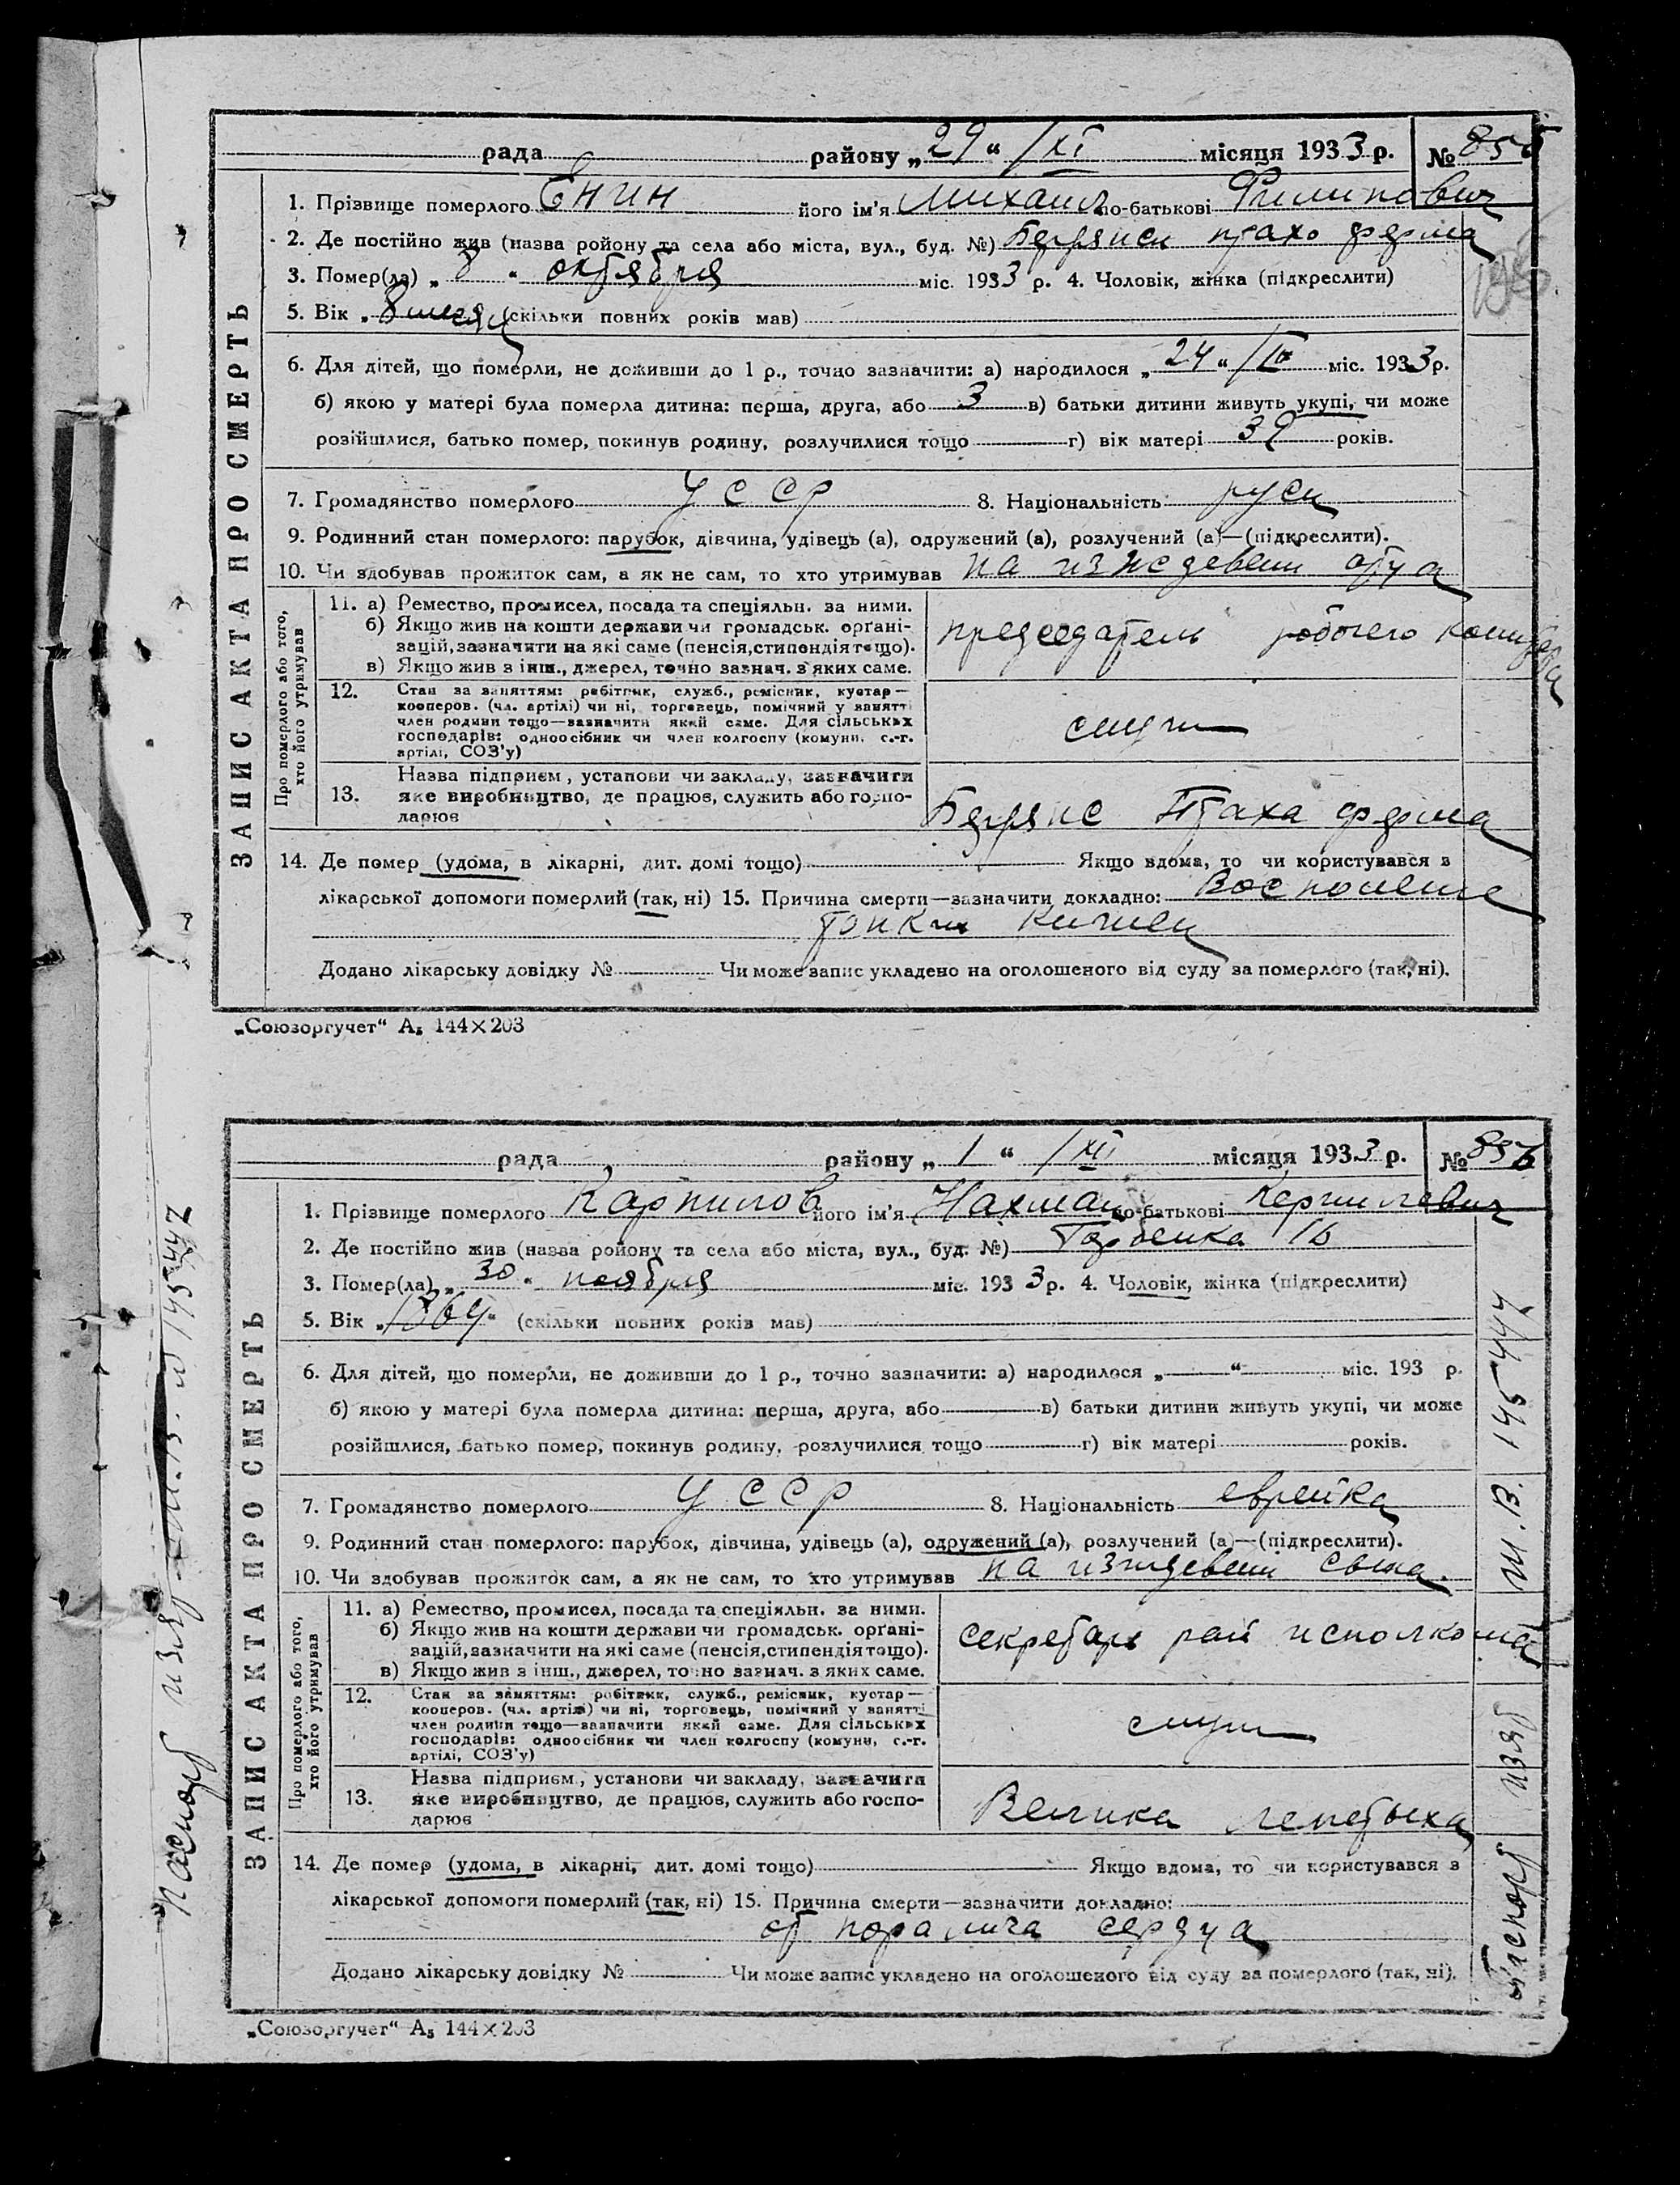 рада району „29“ /XI місяця 1933 р. № 855
ЗАПИС АКТА ПРО СМЕРТЬ
1. Прізвище померлого Енин його ім'я Михаил по-батькові Филипович
2. Де постійно жив (назва району та села або міста, вул., буд. №) птахо ферма
3. Помер(ла) „8“ октября міс. 1933 р. 4. Чоловік, жінка (підкреслити)
5. Вік „8 месяц (скільки повних років мав)
6. Для дітей, що померли, не доживши до 1 р., точно зазначити: а) народилося „24“ міс. 1933 р.
б) якою у матері була померла дитина: перша, друга, або 3 в) батьки дитини живуть укупі, чи може
розійшлися, батько помер, покинув родину, розлучилися тощо г) вік матері 39 років.
7. Громадянство померлого УССР 8. Національність руск
9. Родинний стан померлого: парубок, дівчина, удівець (а), одружений (а), розлучений (а)—(підкреслити).
10. Чи здобував прожиток сам, а як не сам, то хто утримував на изждевени отца
Про померлого або того,
хто його утримував
11. а) Ремество, промисел, посада та спеціяльн. за ними.
б) Якщо жив на кошти держави чи громадськ. орґані-
зацій, зазначити на які саме (пенсія, стипендія тощо).
в) Якщо жив з інш., джерел, точно зазнач. з яких саме.
председатель робочего комитета
12. Стан за заняттям: робітник, служб., ремісник, кустар—
кооперов. (чл. артілі) чи ні, торговець, помічний у занятті
член родини тощо—зазначити який саме. Для сільських
господарів: одноосібник чи член колгоспу (комуни, с.-г.
артілі, СОЗ'у)
служ
13. Назва підприєм, установи чи закладу, зазначити
яке виробництво, де працює, служить або госпо-
дарює
Птаха ферма
14. Де помер (удома, в лікарні, дит. домі тощо) Якщо вдома, то чи користувався з
лікарської допомоги померлий (так, ні) 15. Причина смерти—зазначити докладно: Восполение
тонких кишец
Додано лікарську довідку № Чи може запис укладено на оголошеного від суду за померлого (так, ні).
„Союзоргучет“ А₅ 144×203
рада району „1“ /XII місяця 1933 р. № 856
ЗАПИС АКТА ПРО СМЕРТЬ
1. Прізвище померлого Карпилов його ім'я Нахман по-батькові
2. Де постійно жив (назва району та села або міста, вул., буд. №) 16
3. Помер(ла) „30“ ноября міс. 1933 р. 4. Чоловік, жінка (підкреслити)
5. Вік (скільки повних років мав)
6. Для дітей, що померли, не доживши до 1 р., точно зазначити: а) народилося „—“ міс. 193 р.
б) якою у матері була померла дитина: перша, друга, або в) батьки дитини живуть укупі, чи може
розійшлися, батько помер, покинув родину, розлучилися тощо г) вік матері років.
7. Громадянство померлого УССР 8. Національність еврейка
9. Родинний стан померлого: парубок, дівчина, удівець (а), одружений (а), розлучений (а)—(підкреслити).
10. Чи здобував прожиток сам, а як не сам, то хто утримував на изждевени сына.
Про померлого або того,
хто його утримував
11. а) Ремество, промисел, посада та спеціяльн. за ними.
б) Якщо жив на кошти держави чи громадськ. орґані-
зацій, зазначити на які саме (пенсія, стипендія тощо).
в) Якщо жив з інш., джерел, точно зазнач. з яких саме.
секретарь рай исполкома
12. Стан за заняттям: робітник, служб., ремісник, кустар—
кооперов. (чл. артілі) чи ні, торговець, помічний у занятті
член родини тощо—зазначити який саме. Для сільських
господарів: одноосібник чи член колгоспу (комуни, с.-г.
артілі, СОЗ'у)
служ
13. Назва підприєм, установи чи закладу, зазначити
яке виробництво, де працює, служить або госпо-
дарює
Велика лепетыха
14. Де помер (удома, в лікарні, дит. домі тощо) Якщо вдома, то чи користувався з
лікарської допомоги померлий (так, ні) 15. Причина смерти—зазначити докладно:
от поралича сердца
Додано лікарську довідку № Чи може запис укладено на оголошеного від суду за померлого (так, ні).
„Союзоргучет“ А₅ 144×203
Паспорт изят Ш.В. 145447
Паспорт изят 145447